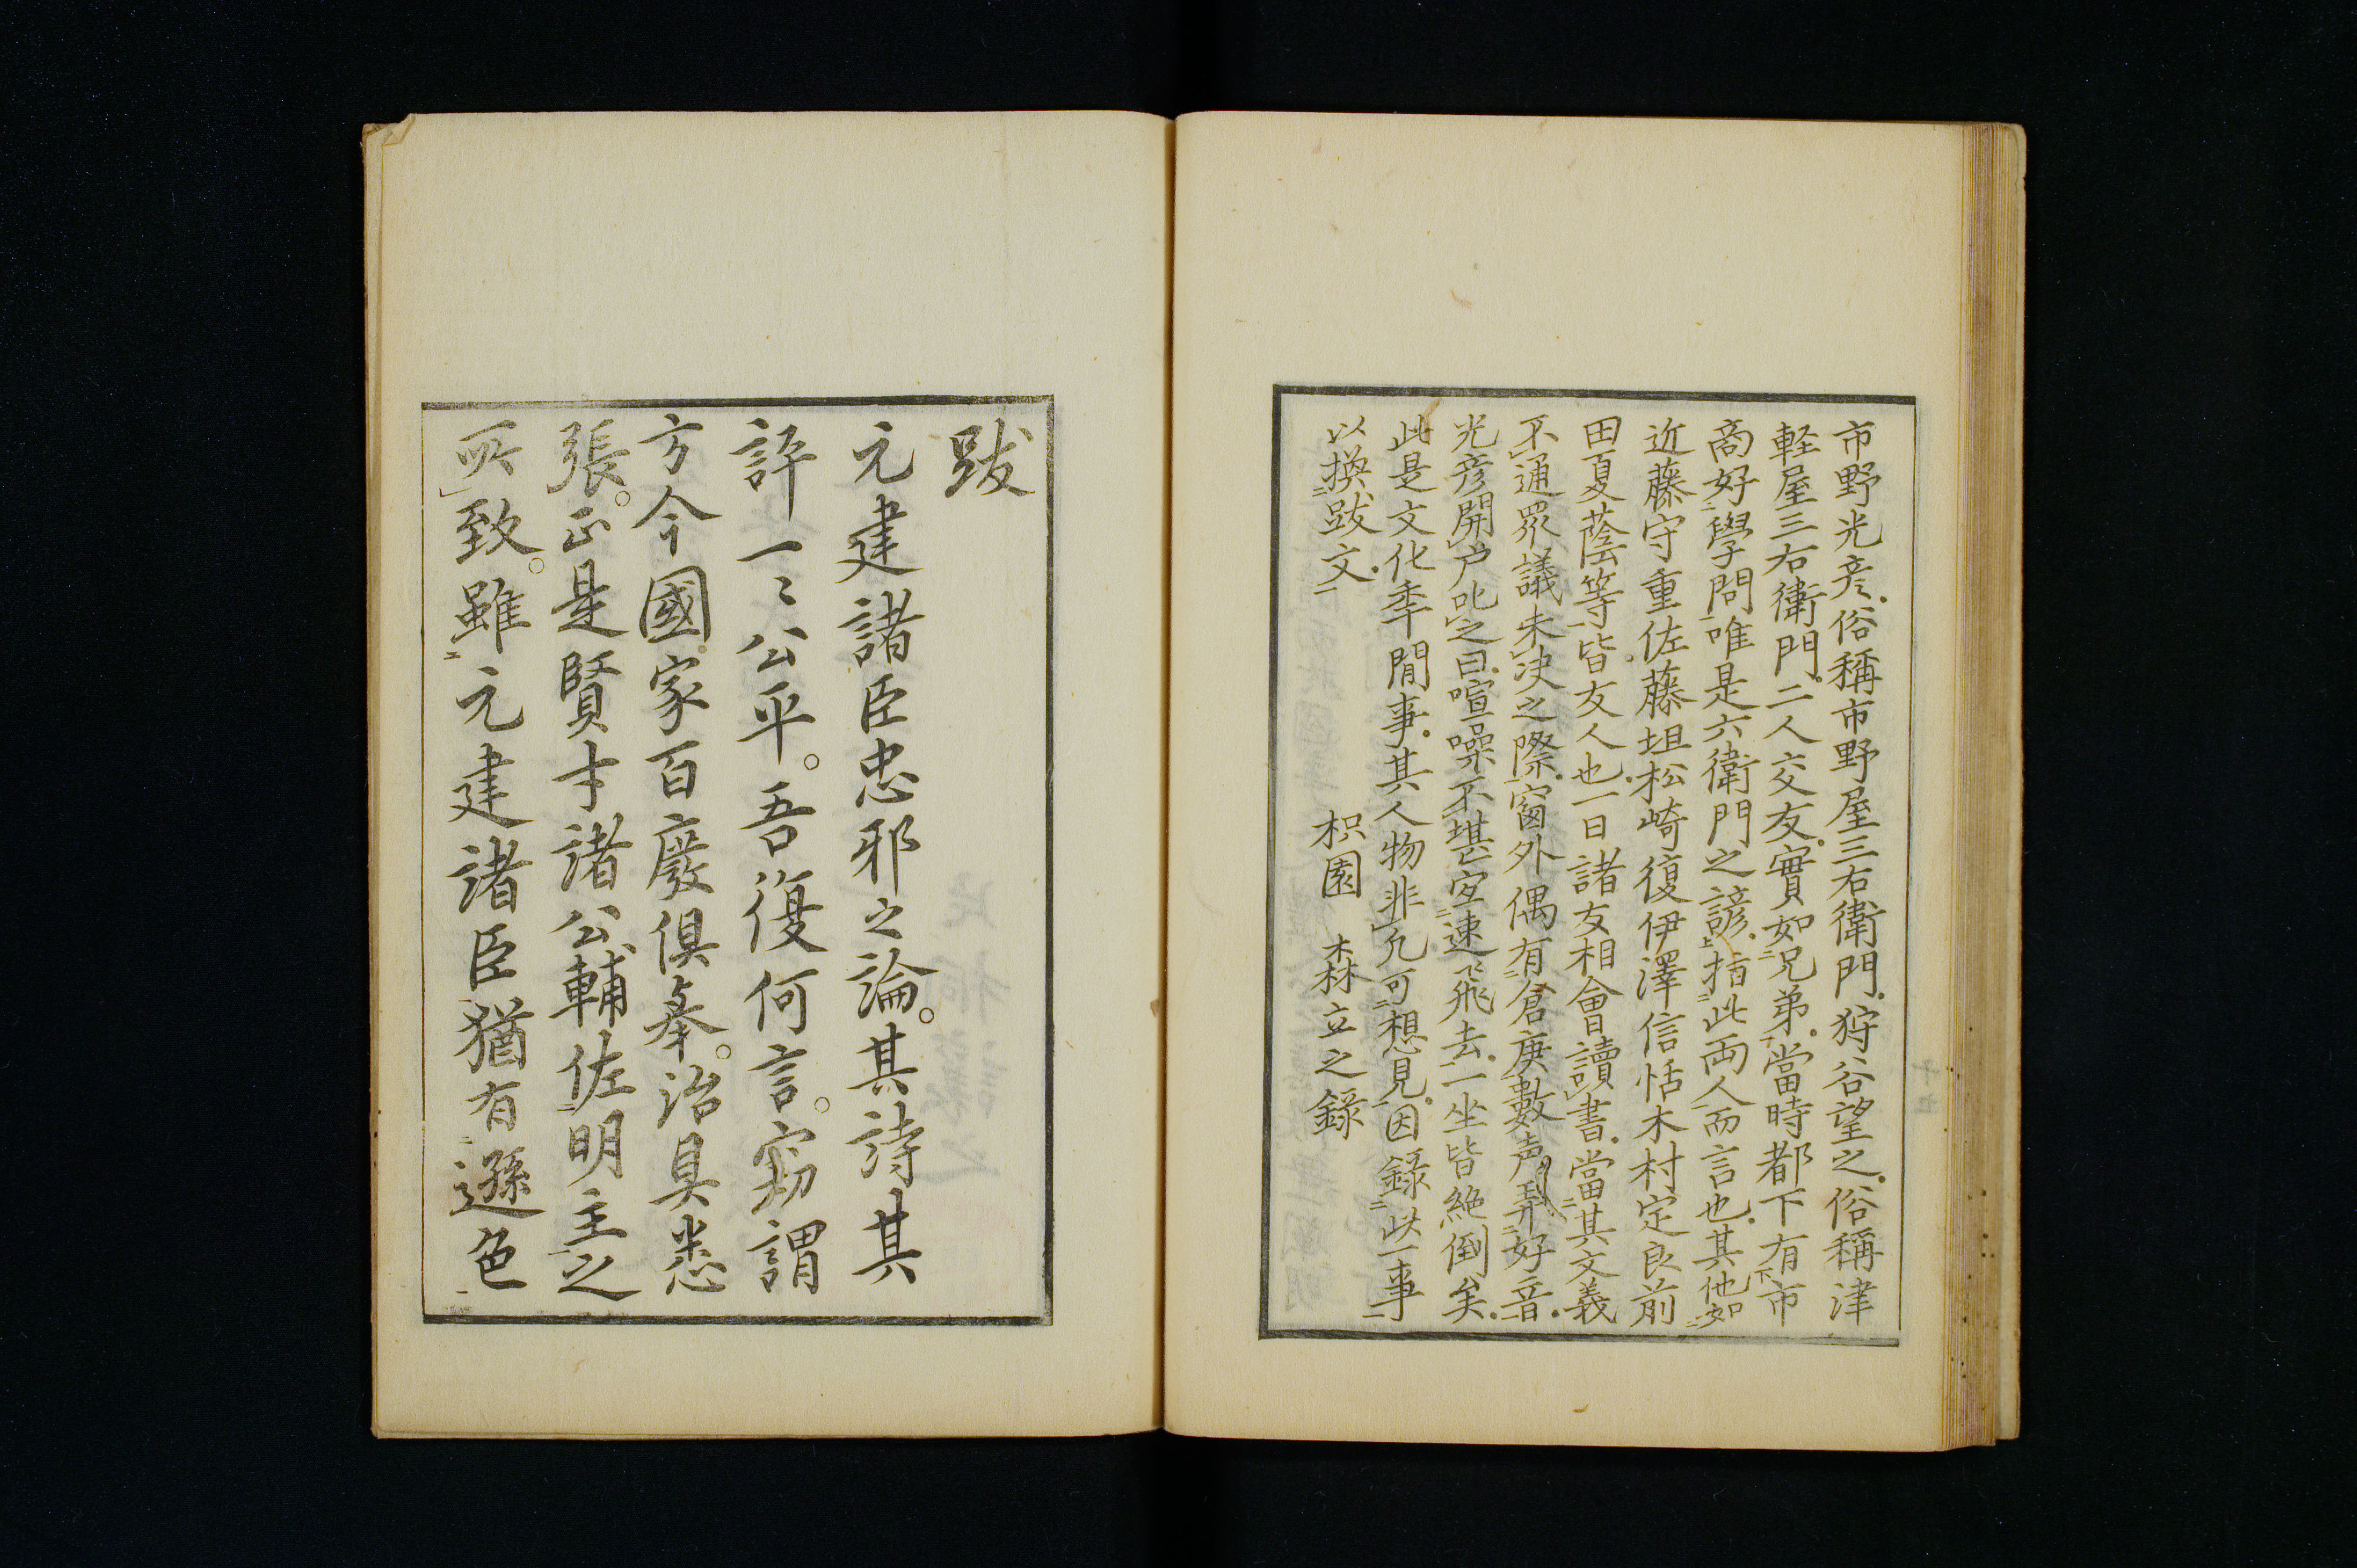 市野光彦.俗稱市野屋三右衛門.狩谷望之.俗稱津
軽屋三右衛門.二人交友.實如兄弟.當時都下有市
商好學問唯是六衛門之諺.指此両人而言也.其他如
近藤守重佐藤坦松崎復伊澤信恬木村定良前
田夏蔭等皆友人也.一日諸友相會讀書.當其文義
不通眾議未决之際.窗外偶有倉庚數声弄好音.
光彦開户叱之曰.喧噪不堪宜速飛去.一坐皆絶倒矣.
此是文化年間事.其人物非凡可想見.因錄此一事
以換跋文.
枳園 森立之錄
跋
元建諸臣忠邪之論。其詩其
評一〻公平。吾復何言。窃謂
方今國家百廢俱舉。治具悉
張。正是賢才諸公輔佐明主之
所致。雖元建諸臣猶有遜色